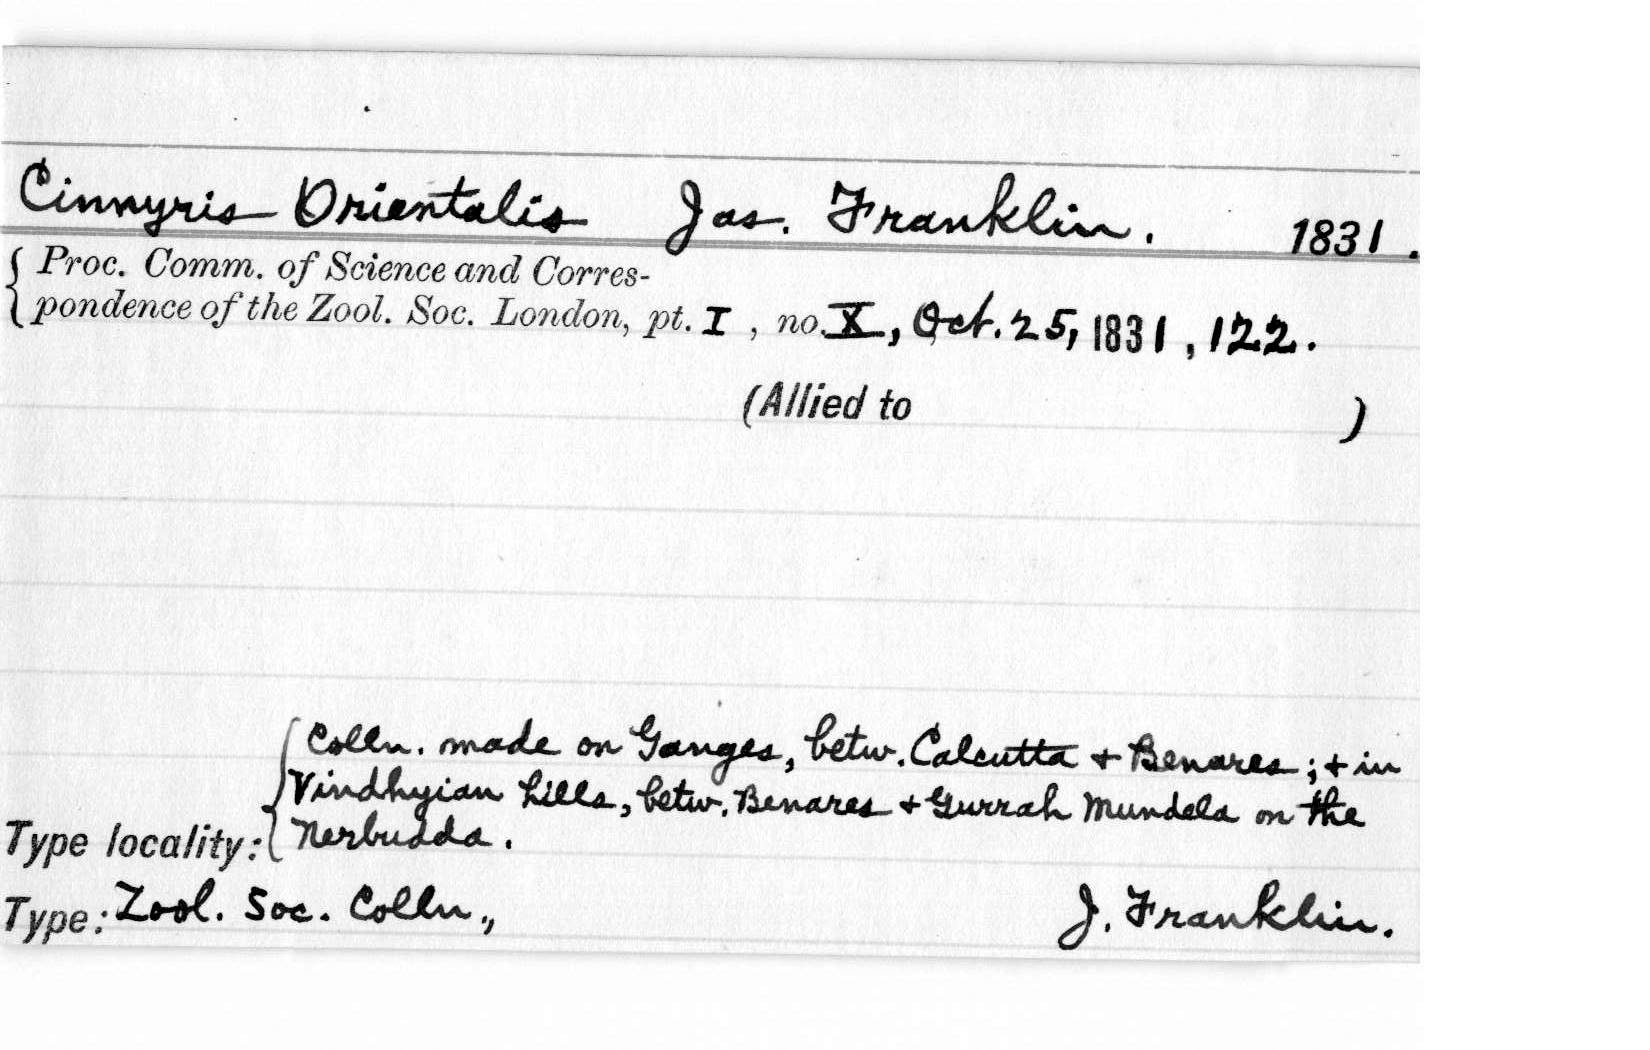 Cinnyris Orientalis Jas. Franklin. 1831.
{ Proc. Comm. of Science and Corres-
pondence of the Zool. Soc. London, pt. I , no. X, Oct. 25, 1831, 122.
(Allied to )
Colln. made on Ganges, betw. Calcutta + Benares; + in
Vindhyian hills, betw. Benares + Gurrah Mundela on the
Type locality: { Nerbudda.
Type: Zool. Soc. Colln., J. Franklin.